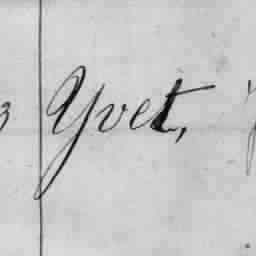 3 Yvet,